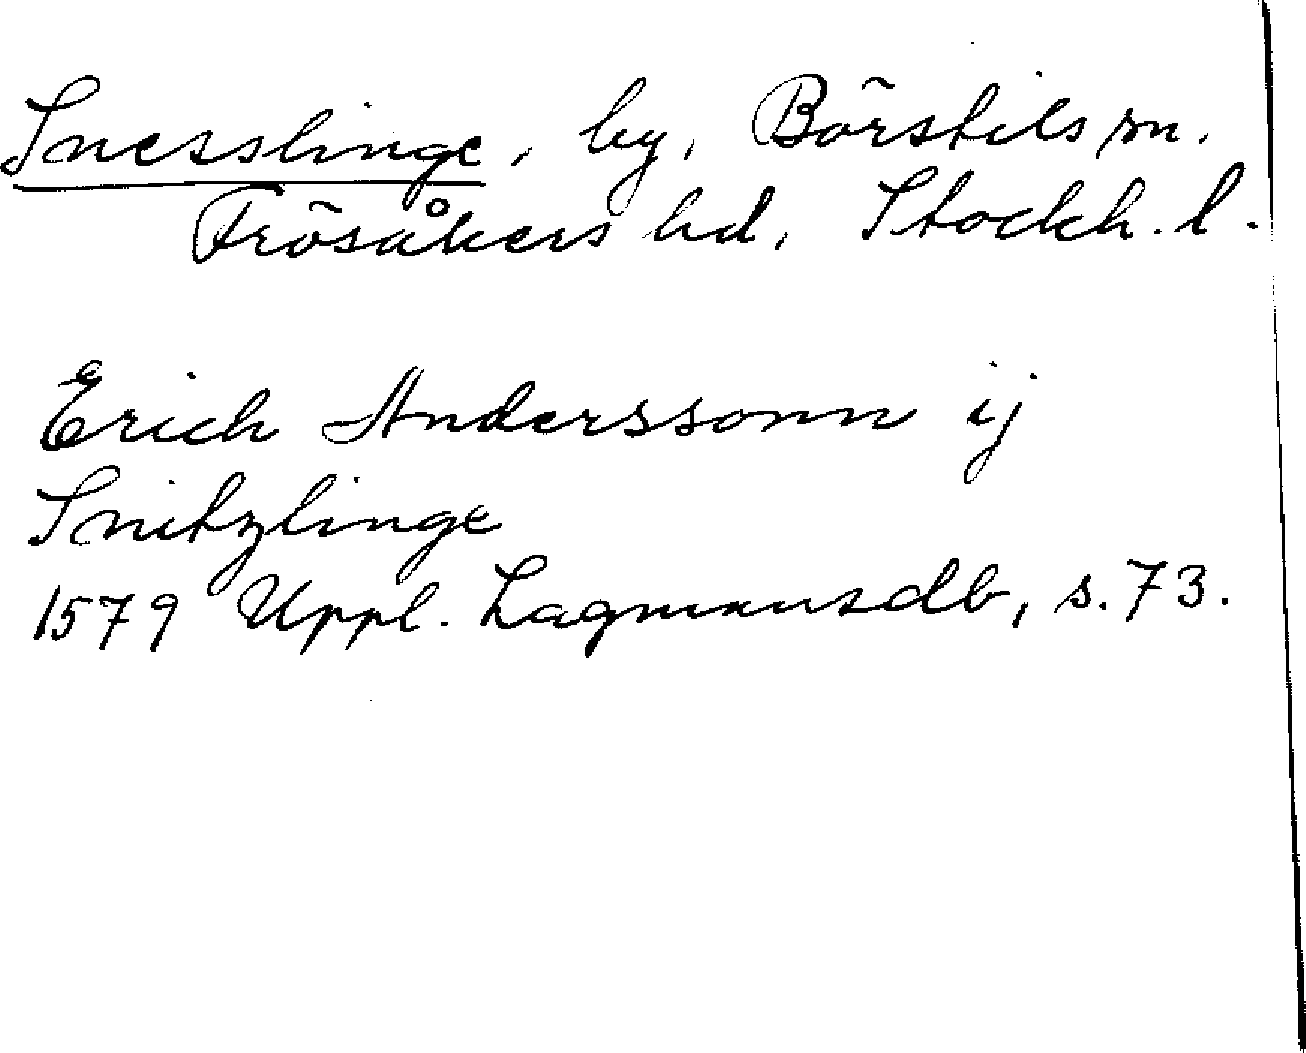 Snesslinge, by, Börstils sn.
Frösåkers hd, Stockh. l.
Erich Anderssonn ij
Snitzlinge
1579 Uppl. Lagmansdb, s. 73.